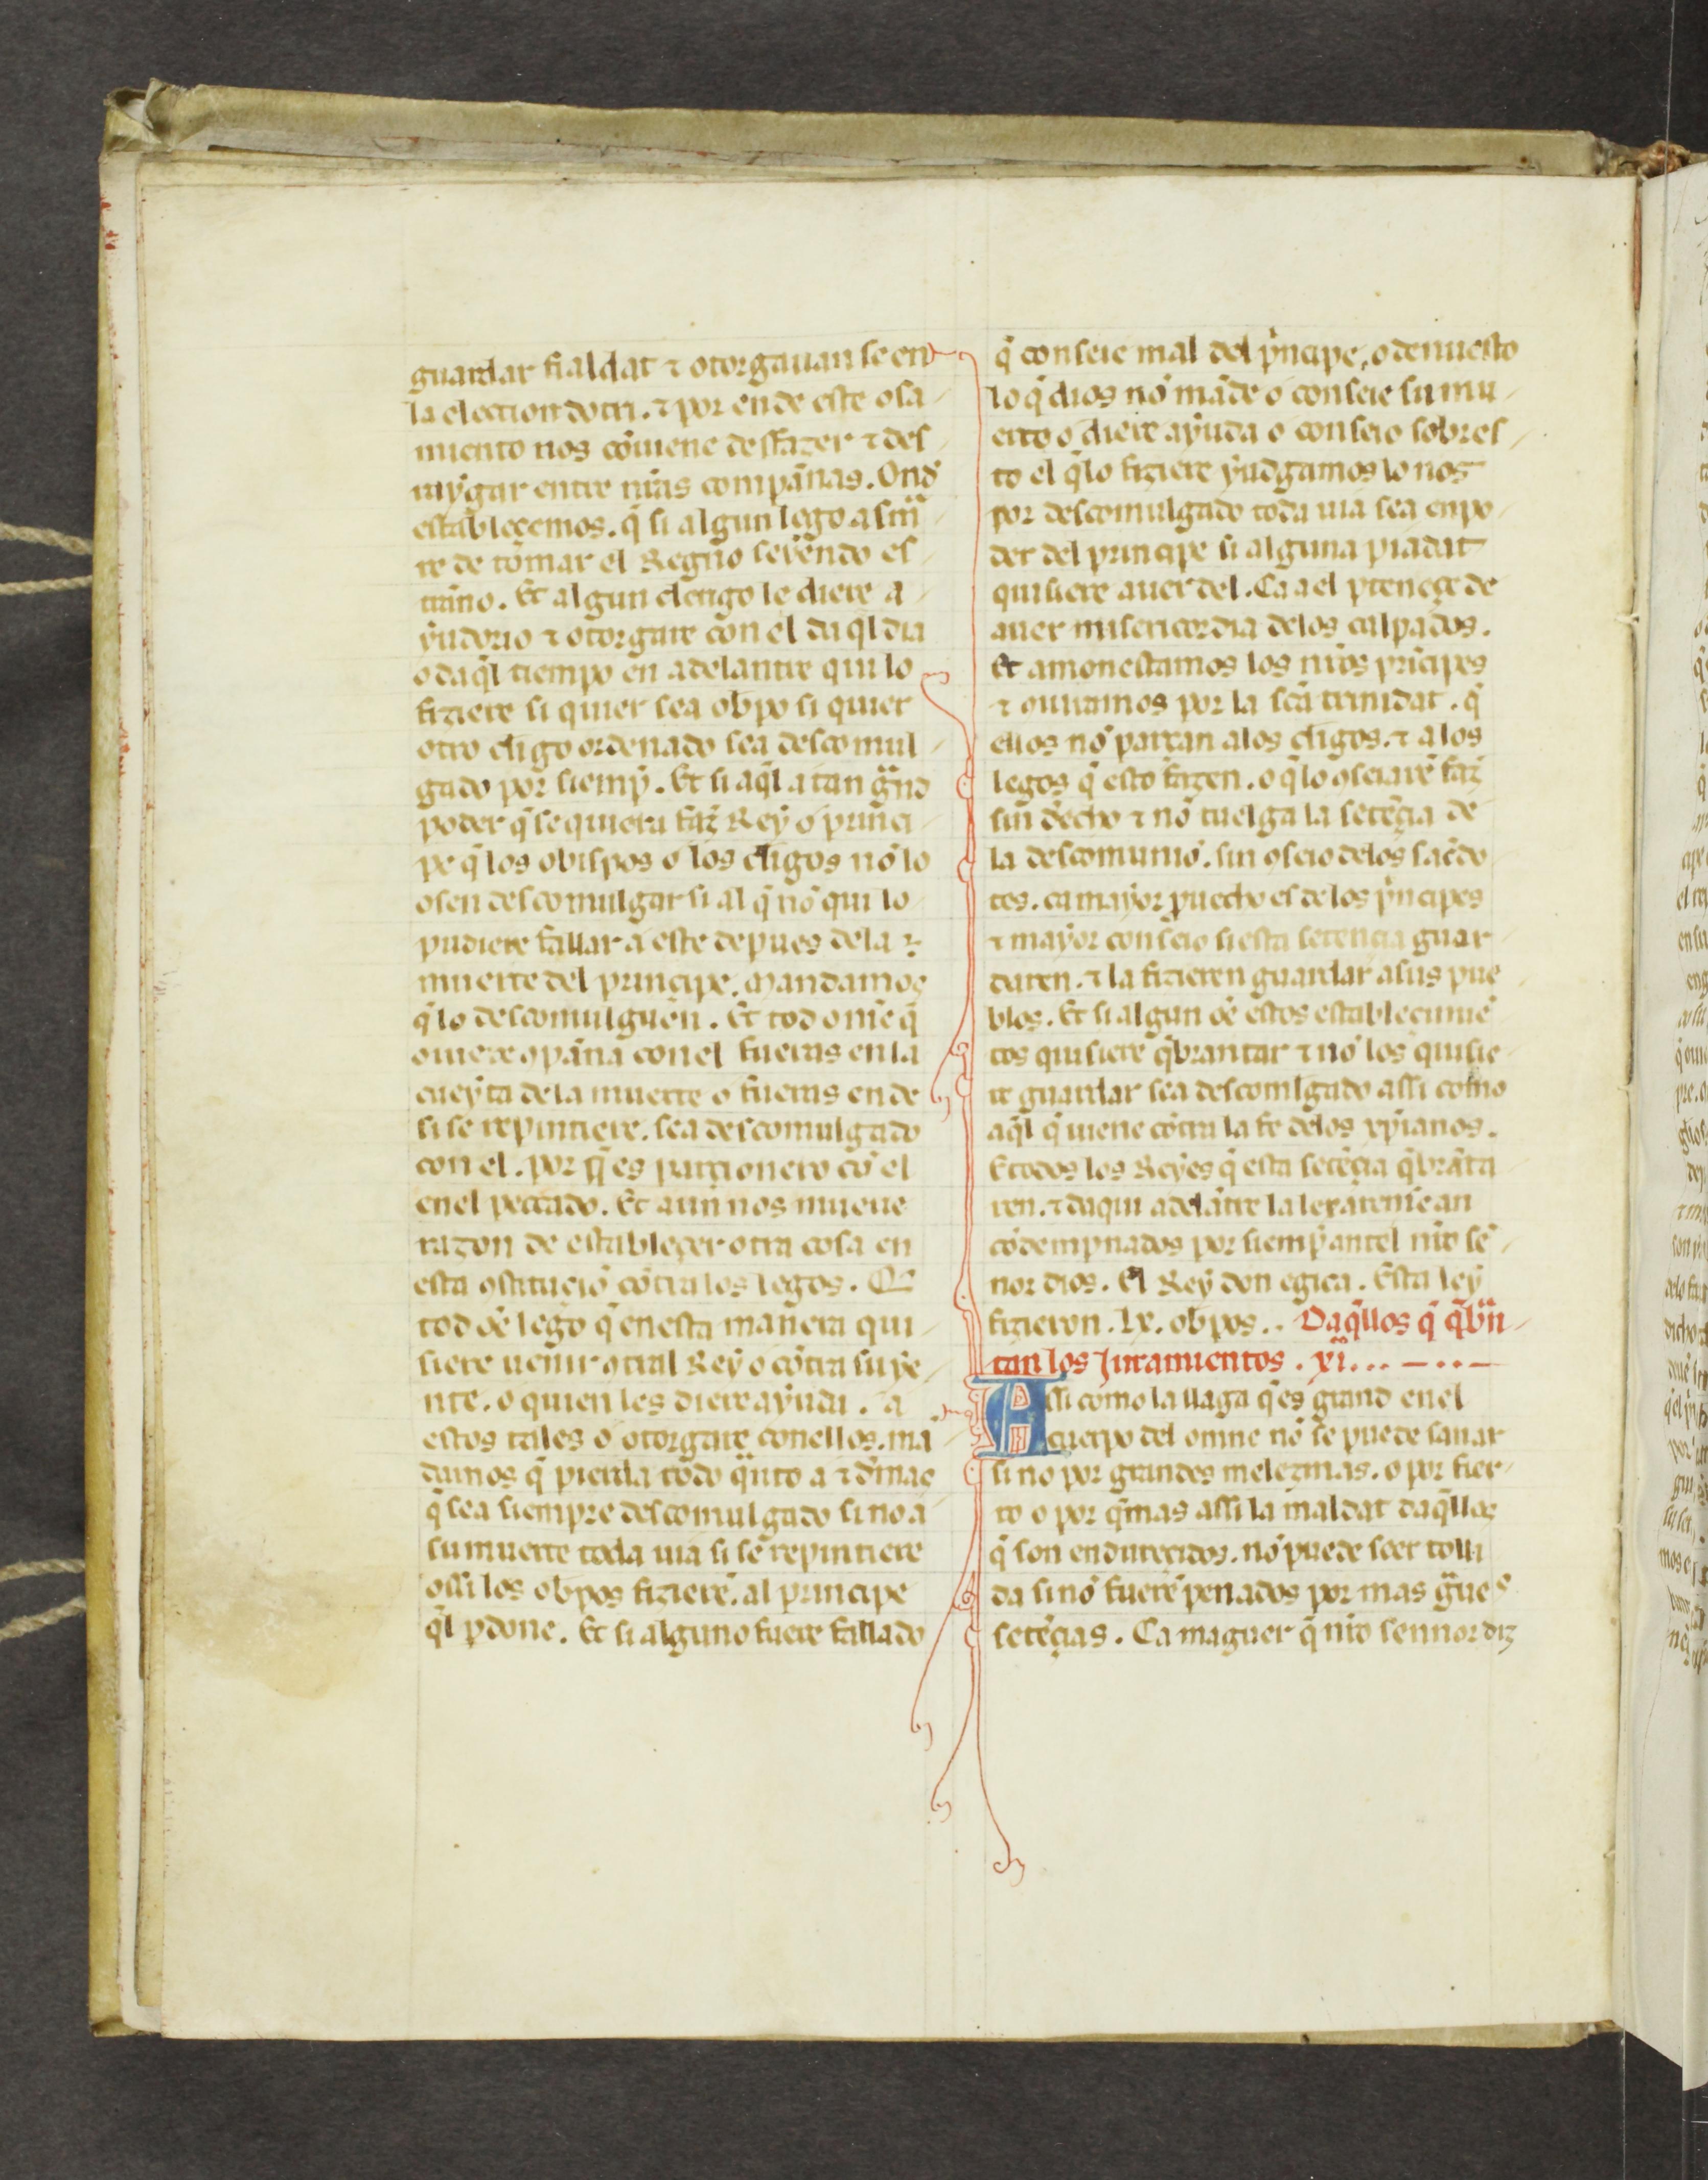 guardar fialdat ⁊ otorgauan se en
la election dotri. ⁊ por ende este osa-
miento nos cōuiene desfazer ⁊ des
raygar entre nr̄as compan̄as. Ond̄
establecemos. q̄ si algun lego asm̄a
re de tomar el Regno seyendo es-
tran̄o. Et algun clerigo le diere a-
yudorio ⁊ otorgare con el da q̄l dia
o daq̄l tiempo en adelantre qui lo
fiziere si quier sea obpo si quier
otro cligo ordenado sea descomul-
gado por siemp̄. Et si aq̄l a tan gnd̄
poder q̄ se quiera faz̄ Rey o princi-
pe q̄ los obispos o los cligos nō lo
osen descomulgar si al q̄ nō qui lo
pudiere fallar a este depues dela ⁊
muerte del principe. Mandamos
q̄ lo descomulguen. Et tod om̄e q̄
ouiere ꝯpan̄a con el fueras en la
cueyta de la muerte o fueras ende
si se repintiere. sea descomulgado
con el. por q̄ es parcionero cō el
enel peccado. Et aun nos mueue
razon de establecer otra cosa en
esta ꝯstituciō cōtra los legos. Q̄
tod oē lego q̄ enesta manera qui-
siere uenir ꝯtral Rey o cōtra su ye
nte. o quien les diere ayuda. a
estos tales o otorgare conellos. ma
damos q̄ pierda todo q̄nto a ⁊ d̄mas
q̄ sea siempre descomulgado si no a
su muerte toda uia si se repintiere
ossi los obpos fizierē. al principe
q̄l ꝑdone. Et si alguno fuere fallado
q̄ conseie mal del p̄ncipe. o denuesto
lo q̄ dios nō māde o conseie su mu-
erto o diere ayuda o conseio sobres-
to el q̄ lo fiziere yudgamos lo nos
por descomulgado toda uia sea en po
der del principe si alguna piadat
quisiere auer del. Ca a el ꝑtenece de
auer misericordia delos culpados.
Et amonestamos los nr̄os prīcipes
⁊ ouuramos por la sc̄a trinidat. q̄
ellos nō partan a los cligos. ⁊ a los
legos q̄ esto fazen. o q̄ lo ꝯseiarē faz̄
sin d̄echo ⁊ nō tuelga la setēcia de
la descomuniō. sin ꝯseio delos sac̄do
tes. ca mayor ꝓuecho es de los p̄ncipes
⁊ mayor conseio si esta setencia guar-
daren. ⁊ la fizieren guardar a sus pue-
blos. Et si algun oē estos establecimiē
tos quisiere q̄brantar ⁊ nō los quisie-
re guardar sea descomlgado assi como
aq̄l q̄ uiene cōtra la fe delos xp̄ianos.
E todos los Reyes q̄ esta setēcia q̄brāta
ren. ⁊ daqui adelātre la lexaren sean
cōdempnados por siemp̄ antel nr̄o sē-
nor dios. El Rey don egica. Esta ley
fizieron. lx. obpos.. Daq̄llos q̄ q̄bn̄-
tan los Juramientos. xi... - .. -
Assi como la llaga q̄ es grand enel
cuerpo del omne nō se puede sanar
si no por grandes melezinas. o por fier-
ro o por q̄mas assi la maldat daq̄llos
q̄ son endurecidos. nō puede seer tolli
da si nō fuerē penados por mas gues
setēcias. Ca maguer q̄ nr̄o sennor diz